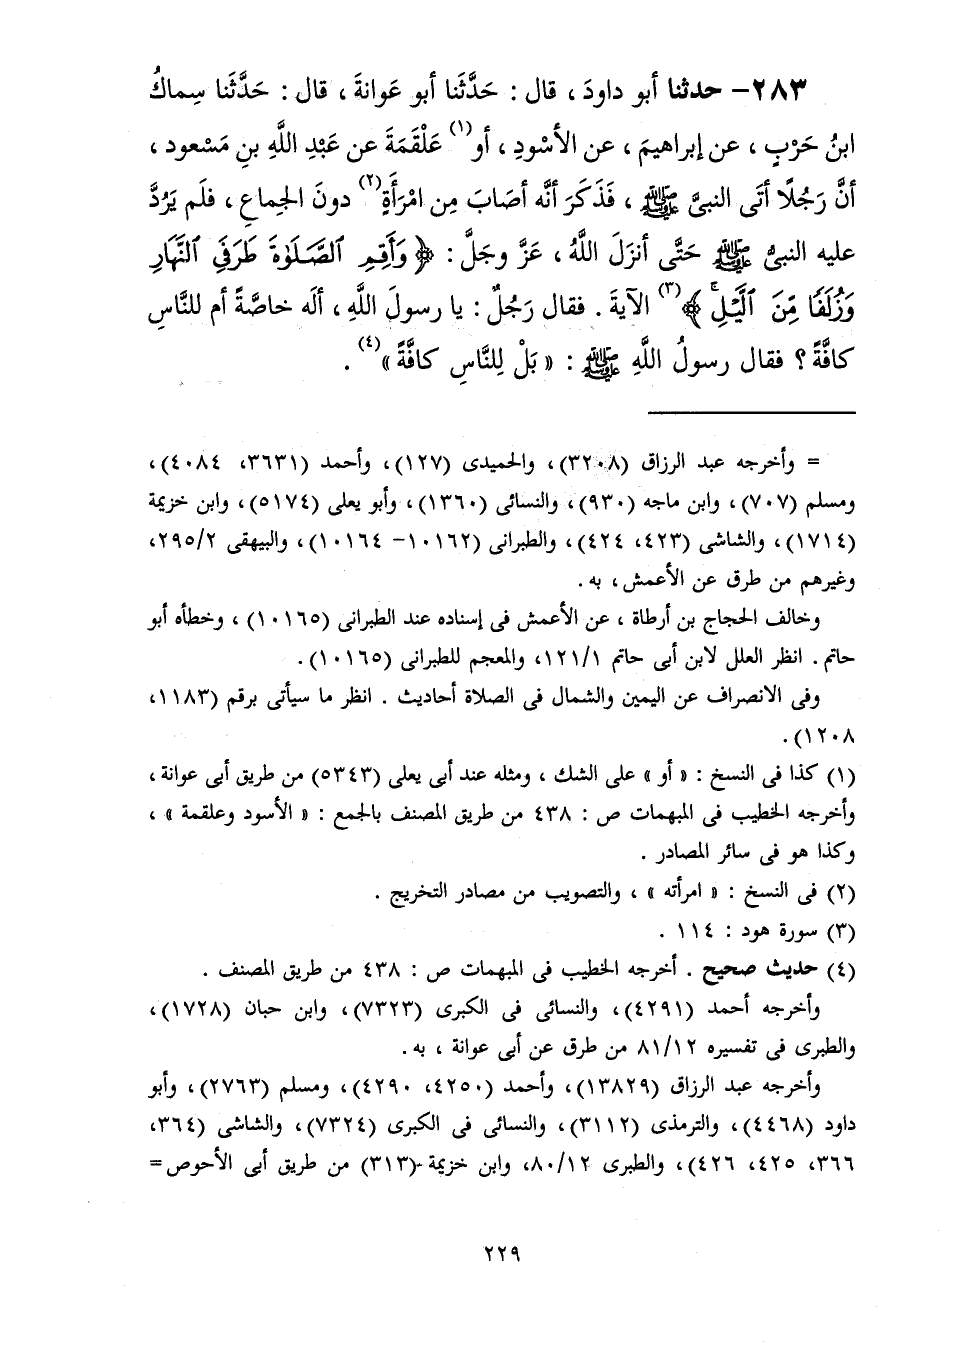 ٢٨٣– حدثنا أبو داودَ ، قال : حَدَّثَنا أبو عَوانةَ ، قال : حَدَّثَنا سِماكُ
ابنُ حَرْبٍ ، عن إبراهيمَ ، عن الأسْودِ ، أو(١) عَلْقَمَةَ عن عَبْدِ اللَّهِ بنِ مَسْعود ،
أنَّ رَجُلًا أتَى النبىَّ ﷺ ، فَذَكَرَ أنَّه أصَابَ مِن امْرَأَةٍ(٢) دونَ الجِماعِ ، فلَم يَرُدَّ
عليه النبىُّ ﷺ حَتَّى أنزَلَ اللَّهُ ، عَزَّ وجَلَّ : ﴿ وَأَقِمِ ٱلصَّلَوٰةَ طَرَفَيِ ٱلنَّهَارِ
وَزُلَفًا مِّنَ ٱلَّيْلِۚ ﴾(٣) الآيةَ . فقال رَجُلٌ : يا رسولَ اللَّهِ ، ألَه خاصَّةً أم للنَّاسِ
كافَّةً ؟ فقال رسولُ اللَّهِ ﷺ : « بَلْ لِلنَّاسِ كافَّةً »(٤) .
= وأخرجه عبد الرزاق (٣٢٠٨)، والحميدى (١٢٧)، وأحمد (٣٦٣١، ٤٠٨٤)،
ومسلم (٧٠٧)، وابن ماجه (٩٣٠)، والنسائى (١٣٦٠)، وأبو يعلى (٥١٧٤)، وابن خزيمة
(١٧١٤)، والشاشى (٤٢٣، ٤٢٤)، والطبرانى (١٠١٦٢– ١٠١٦٤)، والبيهقى ٢٩٥/٢،
وغيرهم من طرق عن الأعمش ، به .
وخالف الحجاج بن أرطاة ، عن الأعمش فى إسناده عند الطبرانى (١٠١٦٥) ، وخطأه أبو
حاتم . انظر العلل لابن أبى حاتم ١٢١/١، والمعجم للطبرانى (١٠١٦٥).
وفى الانصراف عن اليمين والشمال فى الصلاة أحاديث . انظر ما سيأتى برقم (١١٨٣،
١٢٠٨).
(١) كذا فى النسخ : « أو » على الشك ، ومثله عند أبى يعلى (٥٣٤٣) من طريق أبى عوانة ،
وأخرجه الخطيب فى المبهمات ص : ٤٣٨ من طريق المصنف بالجمع : « الأسود وعلقمة » ،
وكذا هو فى سائر المصادر .
(٢) فى النسخ : « امرأته » ، والتصويب من مصادر التخريج .
(٣) سورة هود : ١١٤ .
(٤) حديث صحيح . أخرجه الخطيب فى المبهمات ص : ٤٣٨ من طريق المصنف .
وأخرجه أحمد (٤٢٩١)، والنسائى فى الكبرى (٧٣٢٣)، وابن حبان (١٧٢٨)،
والطبرى فى تفسيره ٨١/١٢ من طرق عن أبى عوانة ، به .
وأخرجه عبد الرزاق (١٣٨٢٩)، وأحمد (٤٢٥٠، ٤٢٩٠)، ومسلم (٢٧٦٣)، وأبو
داود (٤٤٦٨)، والترمذى (٣١١٢)، والنسائى فى الكبرى (٧٣٢٤)، والشاشى (٣٦٤،
٣٦٦، ٤٢٥، ٤٢٦)، والطبرى ٨٠/١٢، وابن خزيمة (٣١٣) من طريق أبى الأحوص =
٢٢٩